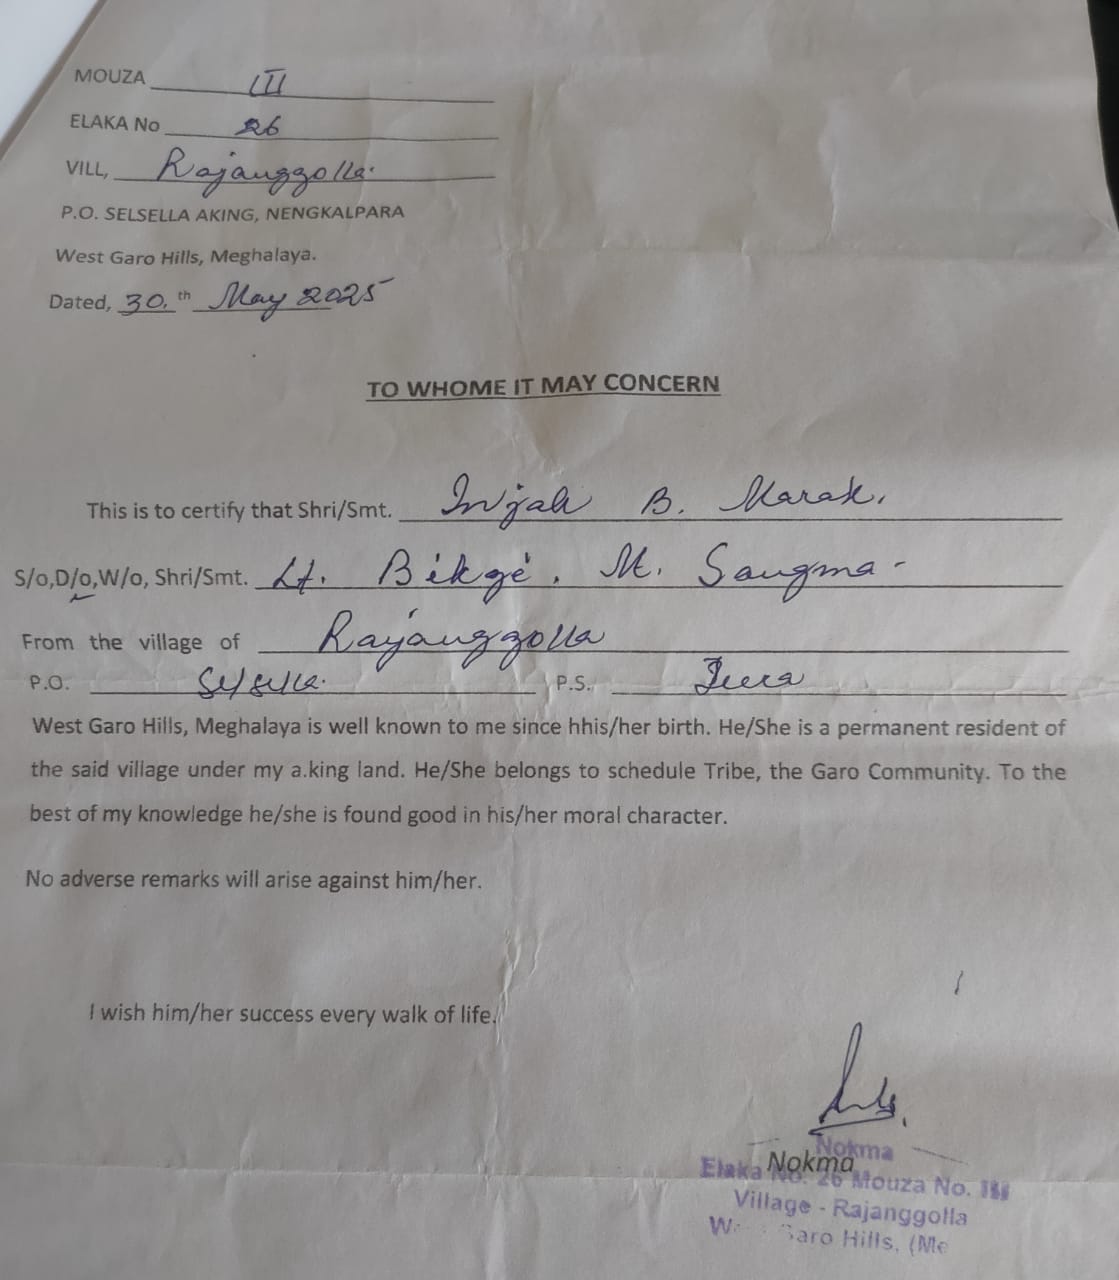 MOUZA III
ELAKA No 26
VILL, Rajanggolla.
P.O. SELSELLA AKING, NENGKALPARA
West Garo Hills, Meghalaya.
Dated, 30.th May 2025
TO WHOME IT MAY CONCERN
This is to certify that Shri/Smt. Injak B. Marak.
S/o,D/o,W/o, Shri/Smt. Lt. Bikge. M. Sangma-
From the village of Rajanggolla
P.O. Selsella. P.S. Tura
West Garo Hills, Meghalaya is well known to me since hhis/her birth. He/She is a permanent resident of
the said village under my a.king land. He/She belongs to schedule Tribe, the Garo Community. To the
best of my knowledge he/she is found good in his/her moral character.
No adverse remarks will arise against him/her.
I wish him/her success every walk of life.
Nokma
Nokma
Elaka No. 26 Mouza No. III
Village - Rajanggolla
Garo Hills, (Me